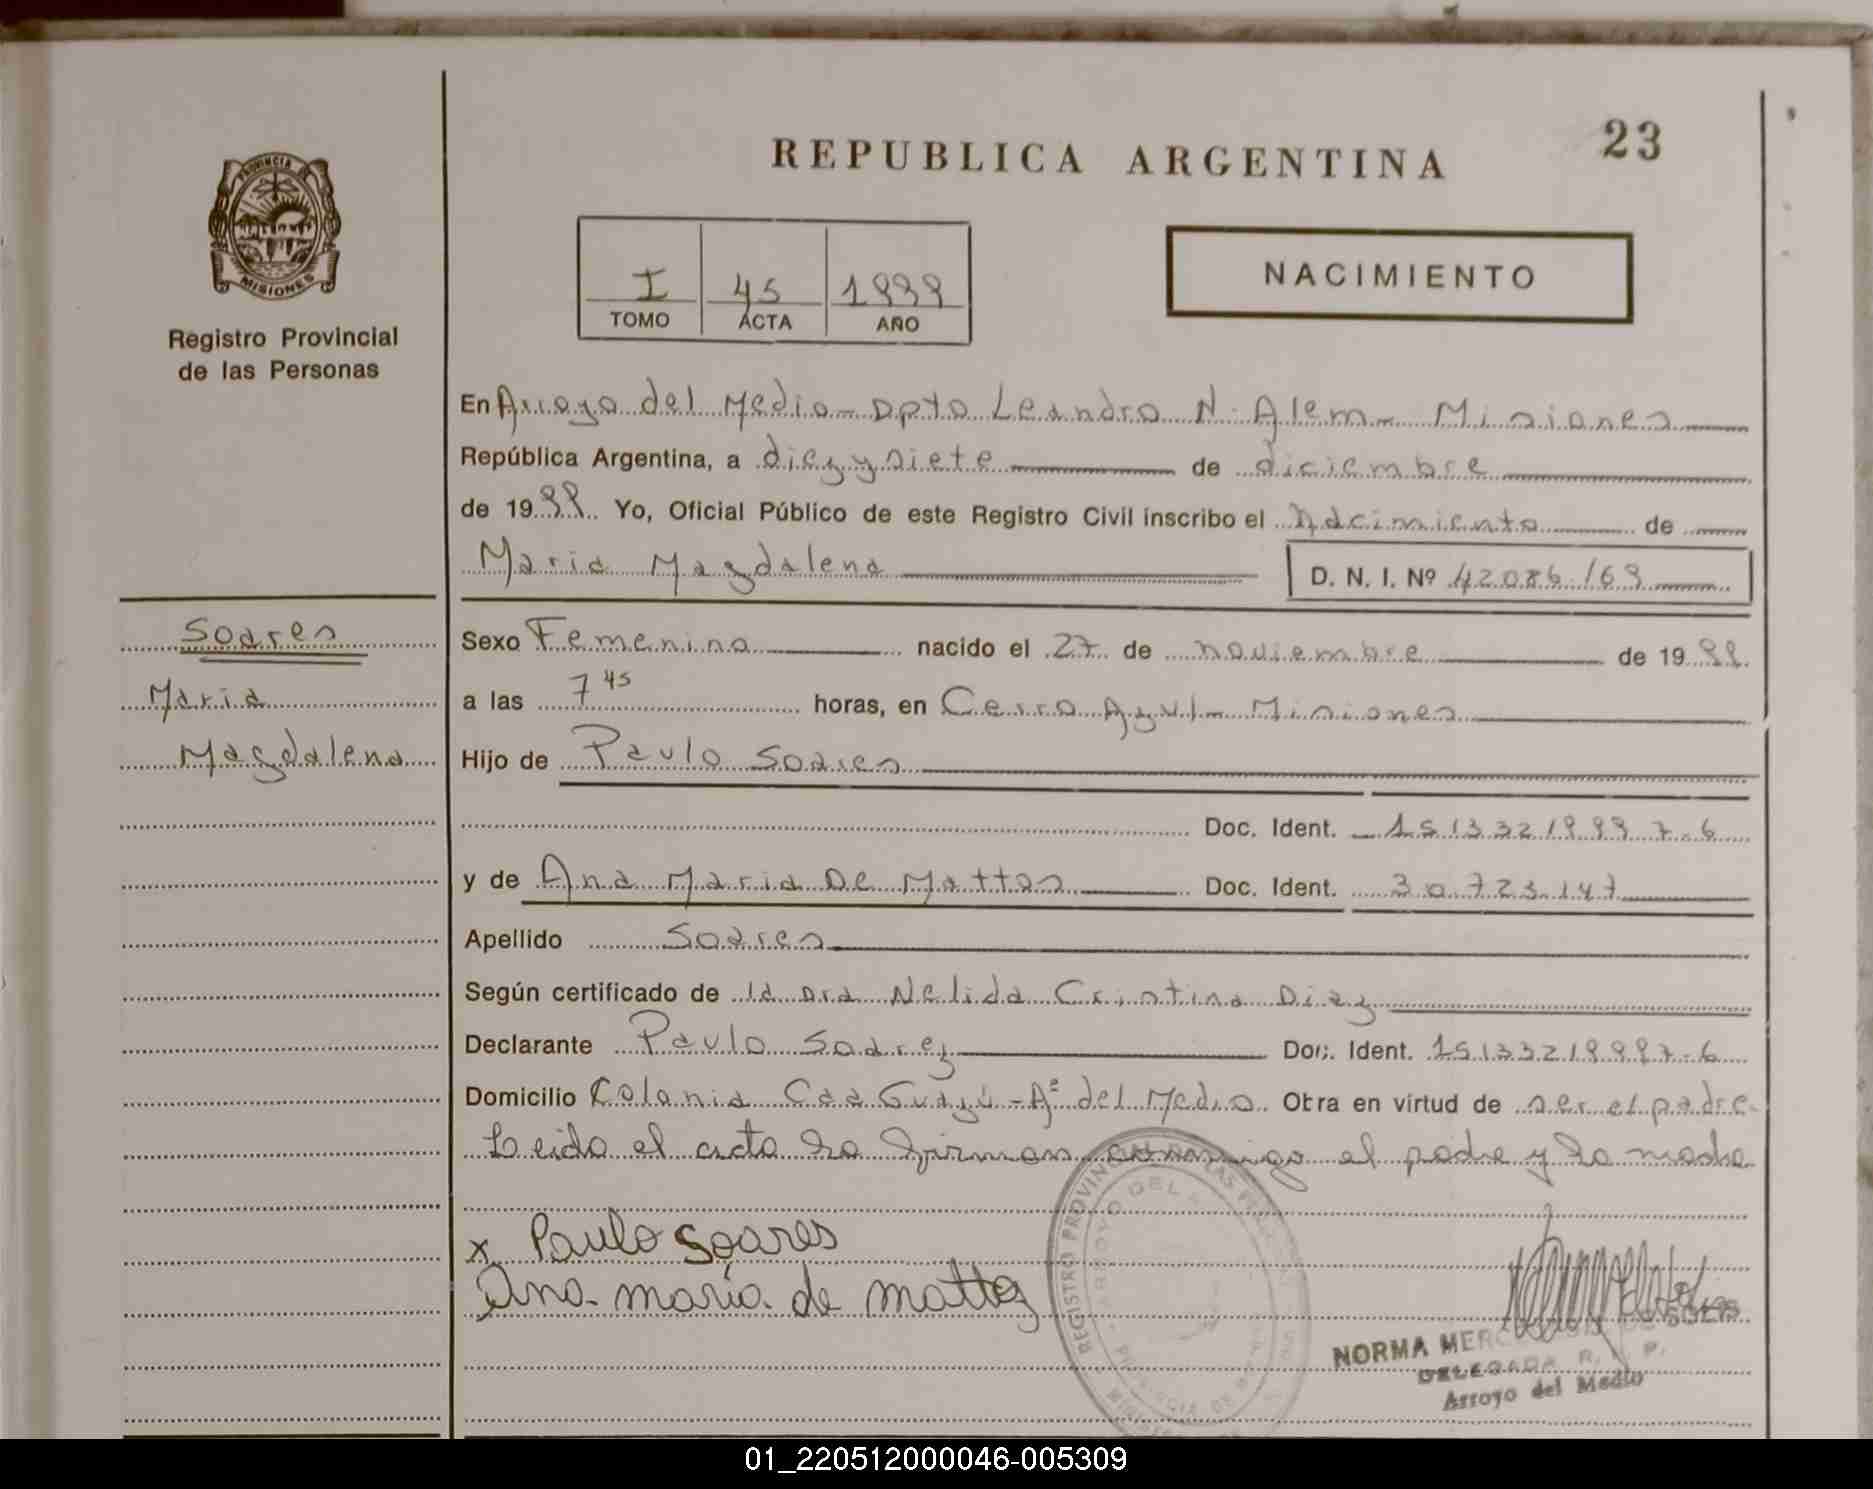 REPUBLICA ARGENTINA
23
PROVINCIA
MISIONES
Registro Provincial
de las Personas
I 45 1999
TOMO ACTA AÑO
NACIMIENTO
En Arroyo del Medio - Dpto Leandro N. Alem - Misiones
República Argentina, a diezysiete de diciembre
de 1999. Yo, Oficial Público de este Registro Civil inscribo el Nacimiento de
Maria Magdalena D. N. I. Nº 42086169
Soares
Maria
Magdalena
Sexo Femenino nacido el 27 de noviembre de 1999.
a las 7 45 horas, en Cerro Azul - Misiones
Hijo de Paulo Soares
Doc. Ident. 1513321999 7-6
y de Ana Maria De Mattos Doc. Ident. 30.723.147
Apellido Soares
Según certificado de la Dra Nelida Cristina Diaz
Declarante Paulo Soarez Doc. Ident. 15133219997-6
Domicilio Colonia Caa Guazú - Aº del Medio. Obra en virtud de ser el padre.
Leido el acta la firman conmigo el padre y la madre
x Paulo Soares
Ana maría de mattos
REGISTRO PROVINCIAL DE LAS
ARROYO DEL
NORMA
DELEGADA R. P.
Arroyo del Medio
01_220512000046-005309